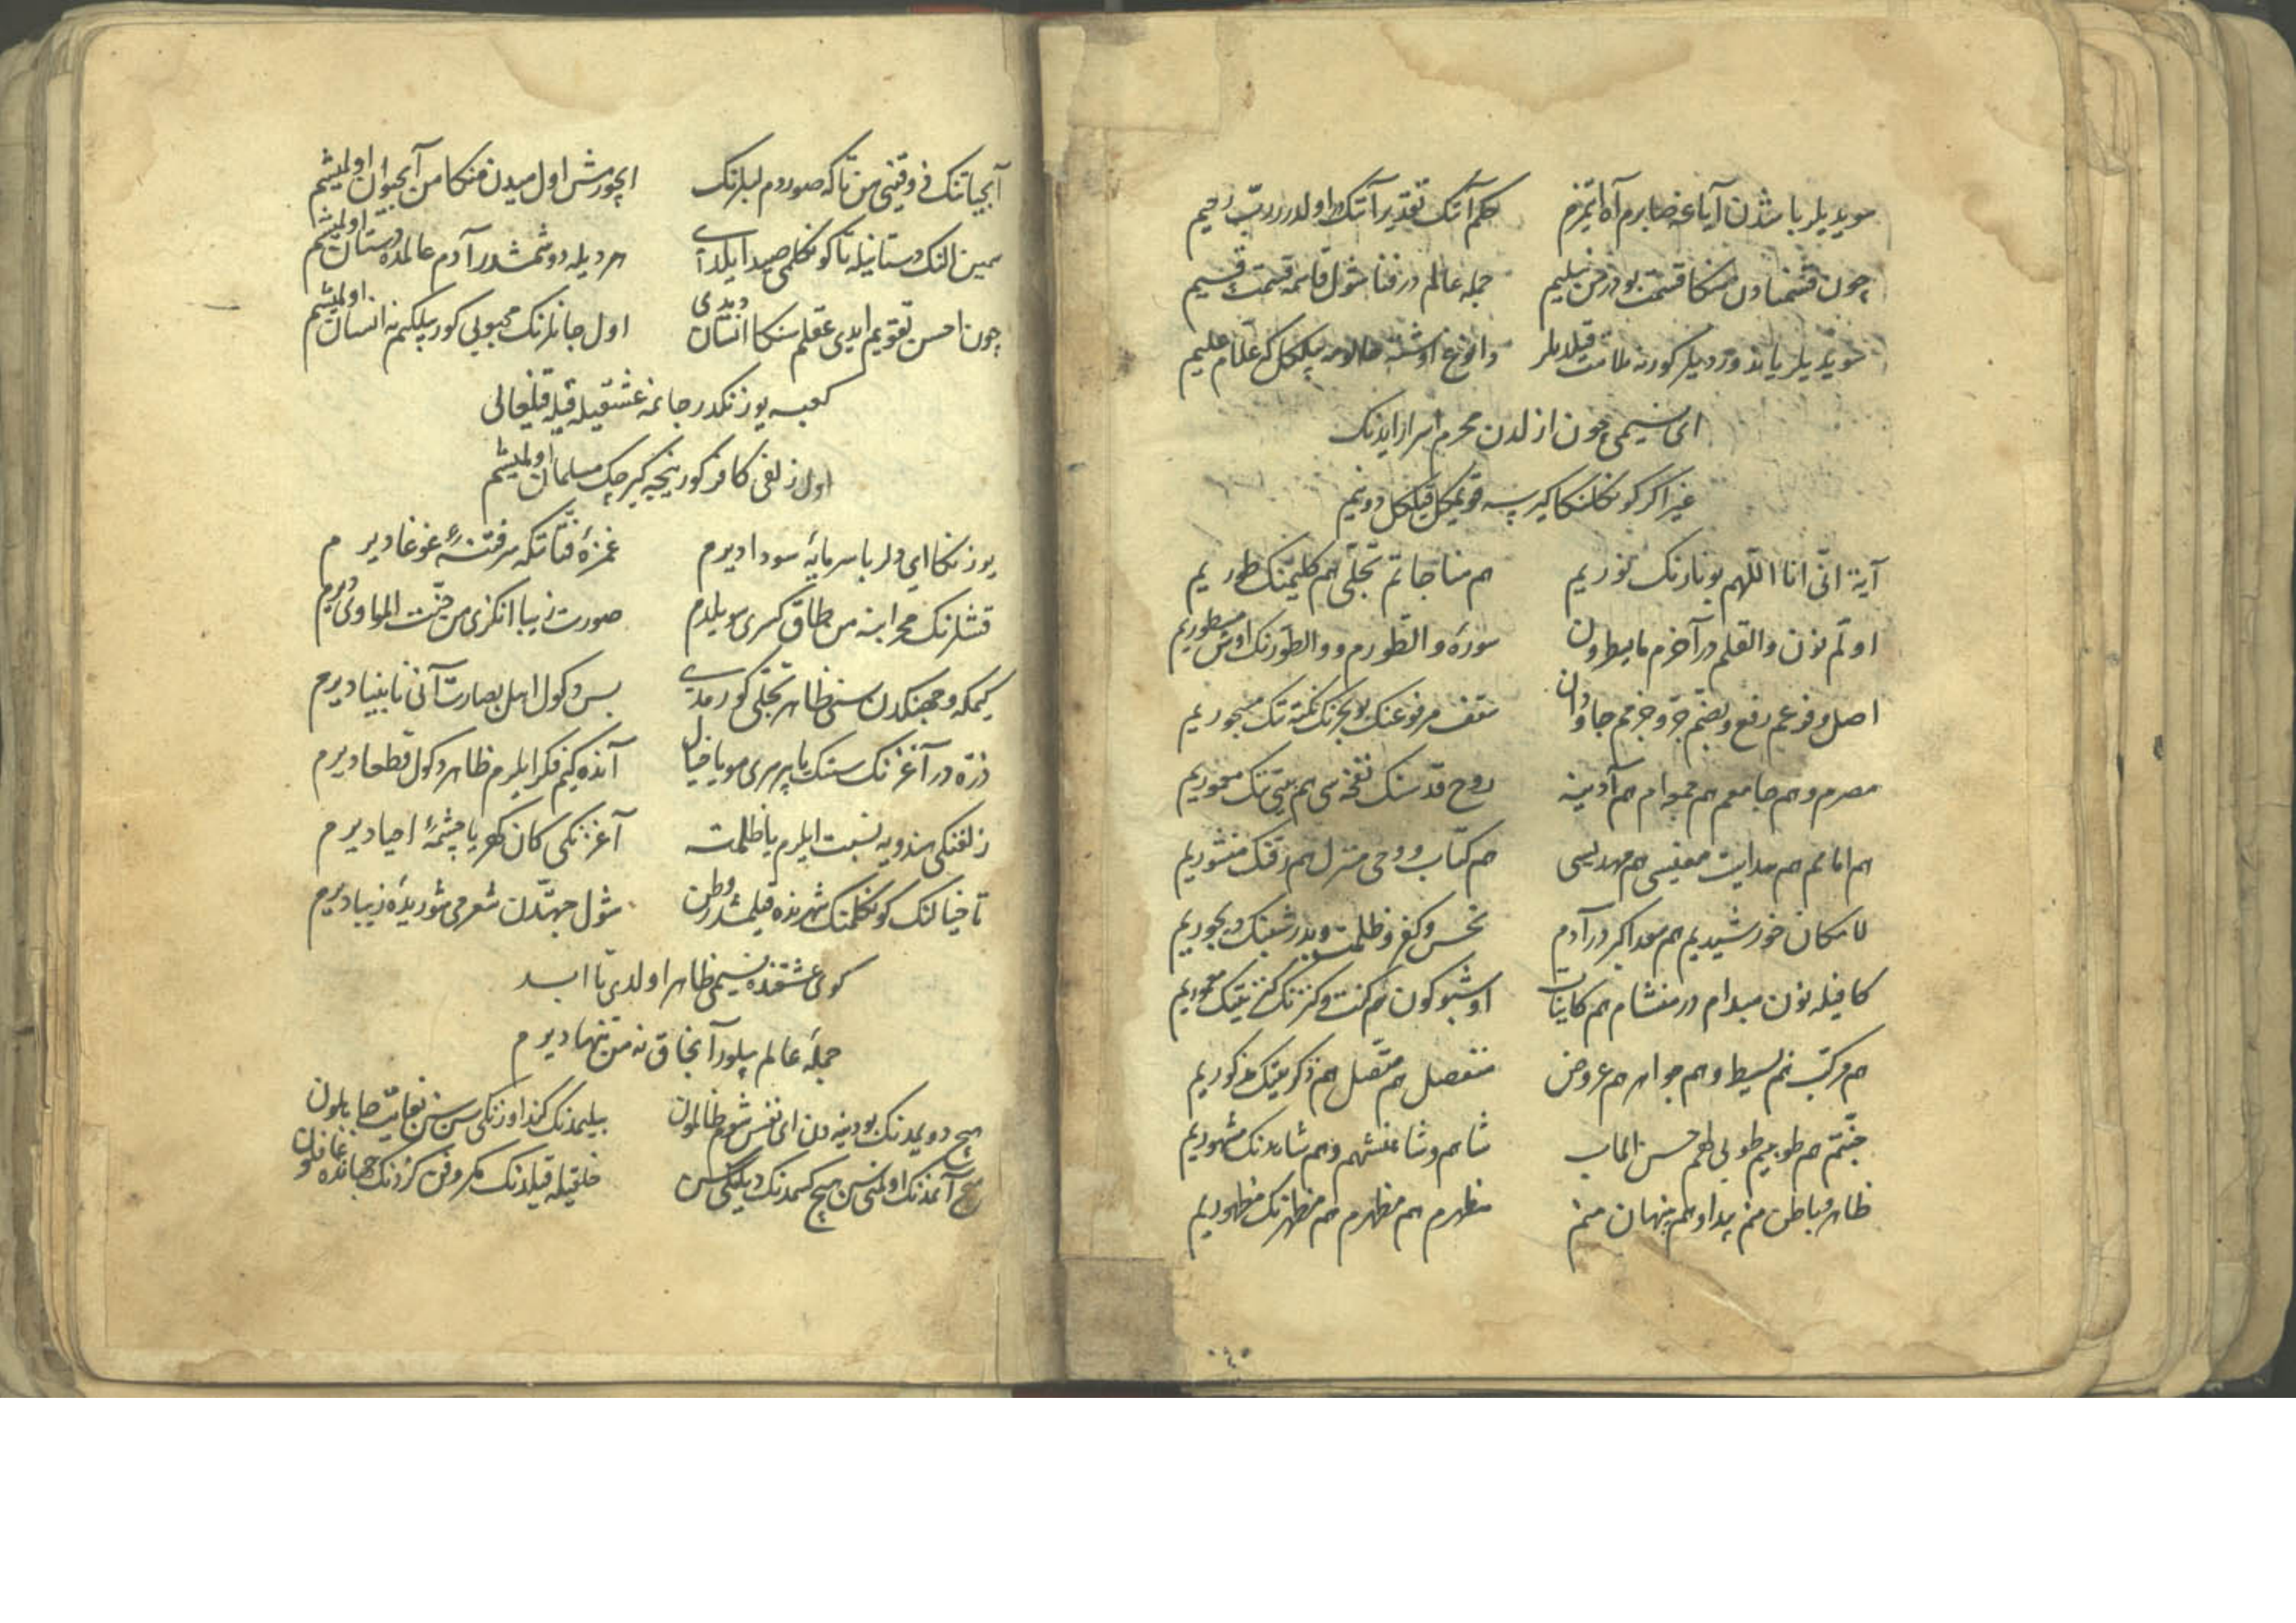 سویدیلر باشدن آیاغه صابرم آه ایتمزم حکم آنک تقدیر آنک اولدر رب رحیم
چون قسمنادن منکا قسمت بودر من نیلیم جمله عالم در فنا شول قاسمه قسمت قسیم
سویدیلر یاندوردیلر کورنه ملامت قیلدیلر علام علیم
ای نسیمی چون ازلدن محرم اسرار ایدنک
غیر اگر کونکلنکا کیرسه قویمغل قیلغل دونیم
آیة انی انا اللهم بو نارنک نوریم هم مناجاتم تجلی هم کلیمنک طوریم
اولم نون والقلم در آخرم مایسطرون سورۀ والطورم و والطورنک اوش مسطوریم
اصل و فرعم رفع و نصبم جر و جزمم جاودان سقف مرفوعنک بو بحرنک نکته تک مسجوریم
مصرم و هم جامعم هم جمعه ام هم آدینه روح قدسنک نفخه سی هم بیتنک معموریم
هم امامم هم هدایت هم مهدیسی هم کتاب و وحی منزل هم رقنک منشوریم
لامکان خورشیدیم هم سعد اکبر در آدم نحس و کفر و ظلمت و بدر شبنک دیجوریم
کافیله نون مبدام در منشام هم کاینات اوشبو کون هم کنت و کنزنک
هم مرکب هم بسیط و هم جواهر هم عروض منفصل هم متصل هم ذکر مذکوریم
جنتم هم طوبیم طوبی لهم حسن الماب شاهم و شاهنشهم و هم شاهدنک مشهوریم
ظاهر و باطن منم پیدا و هم پنهان منم مظهرم هم مظهرم هم مظهرنک مظهوریم
آبحیاتنک ذوقنی من تا که صوردم لبلرنک ایچورمش اول میدن منکا من آبحیوان اولمیشم
سمین النک دستانیله تا کونکلمی صید ایلدی هر دیله دوشمشدر آدم عالمده دستان اولمیشم
چون احسن تقویم ایدی عقلم سنکا انسان دیدی اول جانلرنک محبوبی کور بیلکیم نه انسان اولمیشم
کعبه یوزنکدر جانمه عشقیله قبله قیلغالی
اول زلفی کافر کور نیجه کیرچک مسلمان اولمیشم
یوزنکا ای دلربا سرمایۀ سودا دیرم غمزۀ فتانکه سرفتنۀ غوغا دیرم
قشلرنک محرابنه من طاق کسری سویلدم صورت زیبانکزی من جنت الماوی دیرم
کیمکه وجهنکدن سنی ظاهر تجلی کورمدی بس دکول اهل بصارت آنی نابینا دیرم
ذره در آغزنک سنک یا پر مری مو یا خیال آنده کیم فکر ایلرم ظاهر دکول قطعا دیرم
زلفنکی هندویه نسبت ایلرم یا ظلمته آغزنکی کان گهر یا چشمۀ احیا دیرم
تا خیالنک کونکلمنک شهرنده قیلمشدر وطن شول جهتدن شعرمی شوریدۀ زیبا دیرم
کوی عشقنده نسیمی ظاهر اولدی تا ابد
جملۀ عالم بیلور آنجاق نه من تنها دیرم
هیچ دویمدنک بو دنیه دن ای نفس شوم ظالمون بیلمدنک کند اوزنکی سن سن
هیچ آنمدنک اولمنی سن هیچ کسمدنک دیلنکی سن خلقیله قیلدنک مکر و فن کزدنک جهانده غافلون